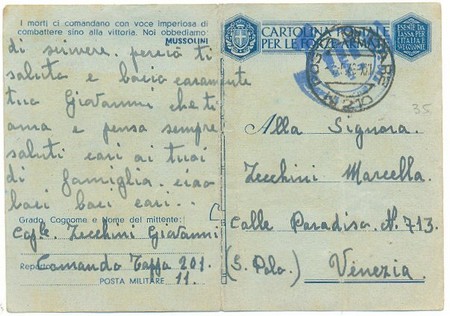 I morti ci comandano con voce imperiosa di
combattere sino alla vittoria. Noi obbediamo
MUSSOLINI
di scrivere. perciò ti
saluta e bacia caramente
tuo Giovanni che ti
ama e pensa sempre
saluti cari ai tuoi
di famiglia. ciao
baci baci cari..
Grado, Cognome e Nome del mittente:
Zecchini Giovanni
Reparto
Comando Tappa 201.
POSTA MILITARE 11.
CARTOLINA POSTALE
PER LE FORZE ARMATE
ESENTE DA
TASSA PER
L'ITALIA
210
35
Alla Signora.
Zecchini Marcella.
Calle Paradiso. N. 713.
(S. Polo.) Venezia